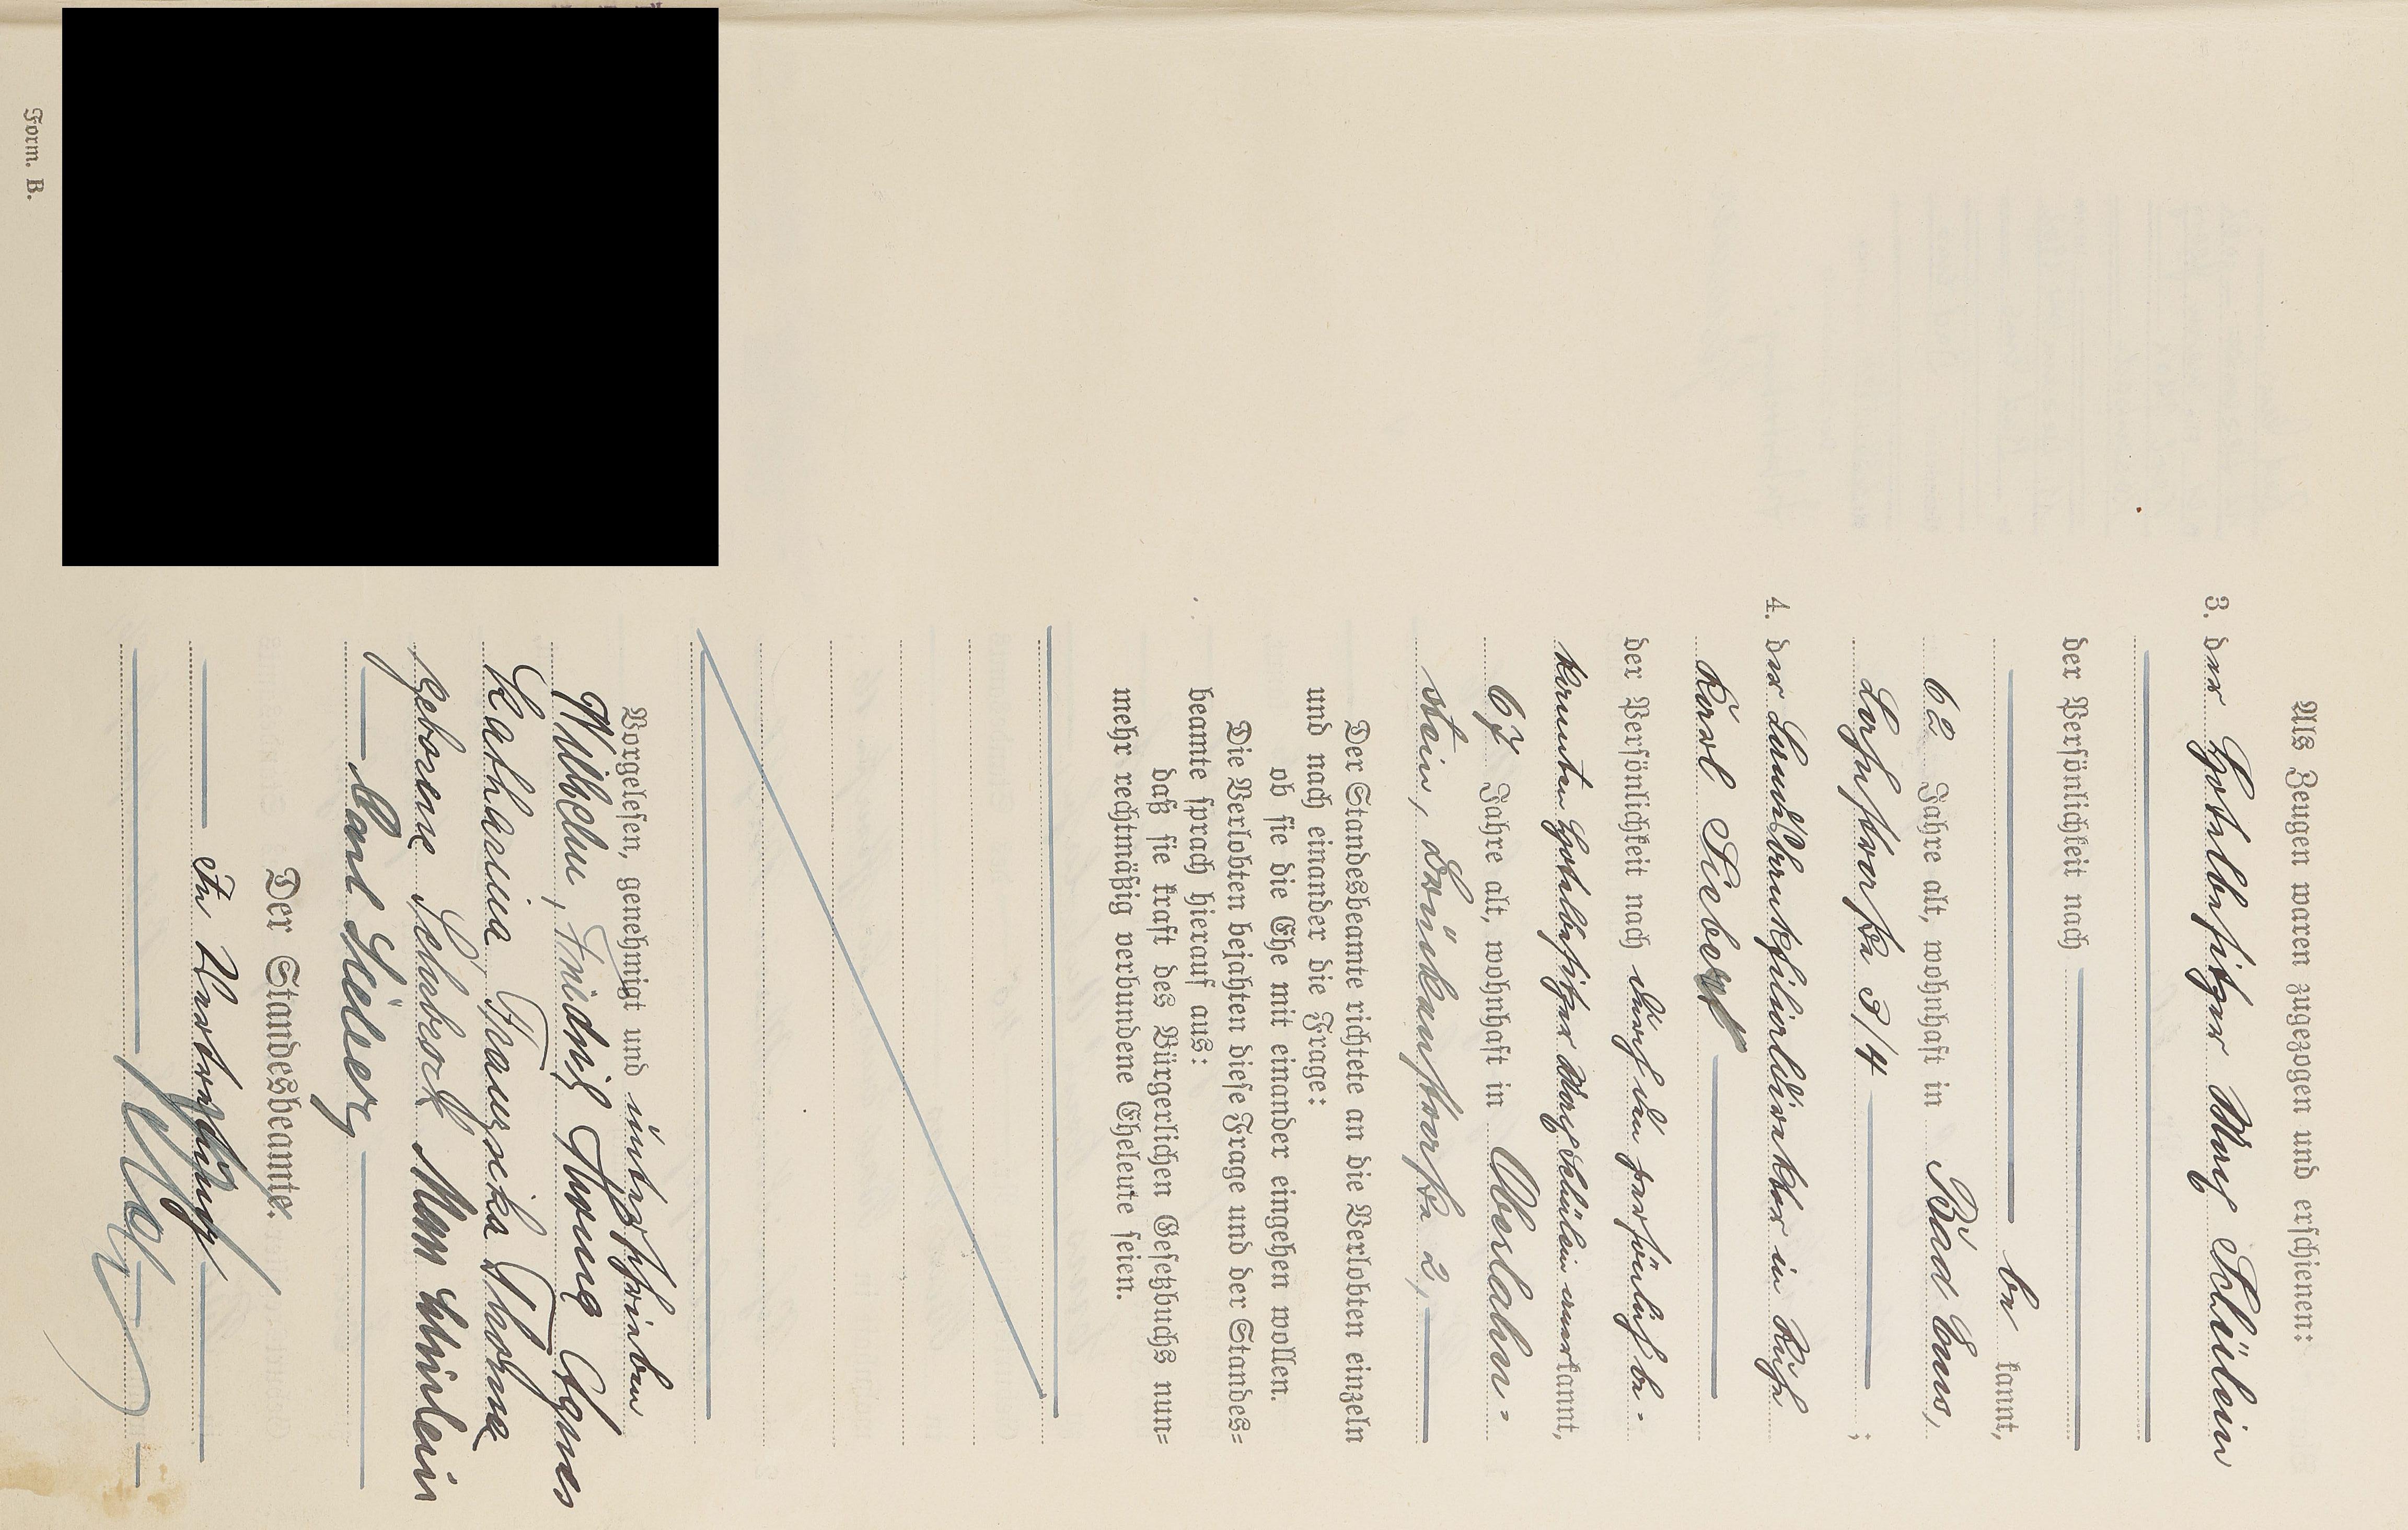 Als Zeugen waren zugezogen und erschienen:
3. der Hotelbesitzer Max Schülein
der Persönlichkeit nach
be kannt,
62 Jahre alt, wohnhaft in Bad Ems,
Lahnstraße 3/4 ;
4. der Landsbankfilialdirektor in Ruhe
Karl Siebert
der Persönlichkeit nach durch den persönlich be-
kannten Hotelbesitzer Max Schülein anerkannt,
67 Jahre alt, wohnhaft in Oberlahn-
stein, Brückenstraße 2,
Der Standesbeamte richtete an die Verlobten einzeln
und nach einander die Frage:
ob sie die Ehe mit einander eingehen wollen.
Die Verlobten bejahten diese Frage und der Standes=
beamte sprach hierauf aus:
daß sie kraft des Bürgerlichen Gesetzbuchs nun=
mehr rechtmäßig verbundene Eheleute seien.
Vorgelesen, genehmigt und unterschrieben
Wilhelm, Friedrich Thome Agnes
Katharina Franziska Thome
geborene Max Schülein
Carl Siebert
Der Standesbeamte.
In Vertretung
Form. B.